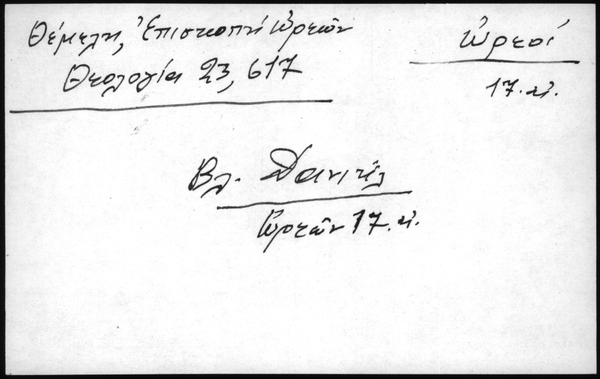 Θέμελη, Ἐπισκοπὴ Ὠρεῶν
Θεολογία 23, 617
Ὠρεοί
17. αἰ.
Βλ. Δανιήλ
Ὠρεῶν 17. αἰ.